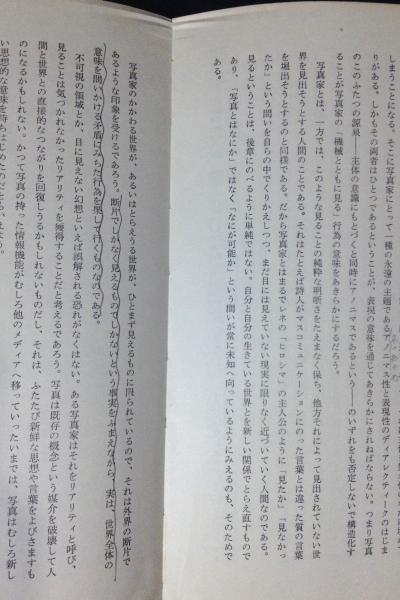 しまうことになる。そこに写真家にとって一種の永遠の主題であるアノニマス性と表現性のディアレクティークのはじま
りがある。しかもその両者はひとつであるということが、表現の意味を通じてあきらかにされねばならない。つまり写真
のこのふたつの源泉――主体の意識にもとづくと同時にアノニマスであるという――のいずれをも否定しないで構造化す
ることが写真家の「機械とともに見る」行為の意味をあきらかにするだろう。
写真家とは、一方では、このような見ることの純粋な明晰さをたえまなく保ち、他方それによって見出されていない世
界を見出そうとする人間のことである。それはたとえば詩人がマスコミュニケーションにのった言葉とは違った質の言葉
を堀出そうとするのと同様である。だから写真家とはまるでレネの「ヒロシマ」の主人公のように「見たか」「見なかっ
たか」という問いを自らの中でくりかえしつつ、まだ目には見えていない現実に限りなく近づいていく人間なのである。
見るということは、後章にのべるように単純ではない。自分と自分の生きている世界とを新しい関係でとらえ直すもので
あり、「写真とはなにか」ではなく「なにが可能か」という問いが常に未知へ向っているようにみえるのも、そのためで
ある。
写真家のかかわる世界が、あるいはとらえうる世界が、ひとまず見えるものに限られているので、それは外界の断片で
あるような印象を受けるであろう。断片でしかなく見えるものでしかないという事実をふまえながら、実は、世界全体の
意味を問いかける矛盾にみちた行為を果して行くものなのである。
不可視の領域とか、目に見えない幻想といえば誤解される恐れがなくはない。ある写真家はそれをリアリティと呼び、
見ることは気づかれなかったリアリティを獲得することだと考えるであろう。写真は既存の概念という媒介を破壊して人
間と世界との直接的なつながりを回復しうるかもしれないものだし、それは、ふたたび新鮮な思想や言葉をよびさますも
のになるかもしれない。かつて写真の持った情報機能がむしろ他のメディアへ移っていったいまでは、写真はむしろ新し
い思想的な意味を持ちはじめたのだともいえよう。